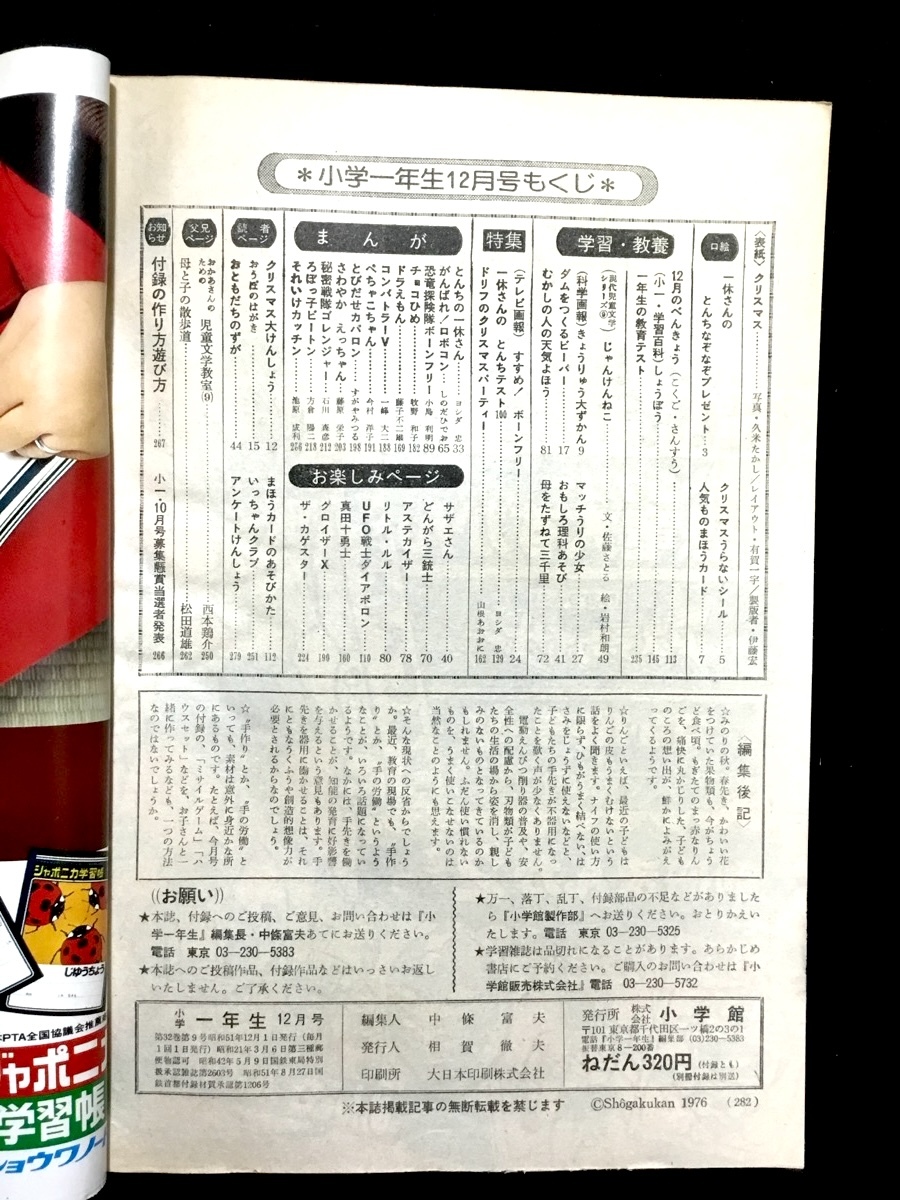 ＊小学一年生12月号もくじ＊
〈表紙〉クリスマス……写真・久米たかし／レイアウト・有賀一宇／製版者・伊藤宏
口絵
一休さんの
とんちなぞなぞプレゼント 3
クリスマスうらないシール 5
人気ものまほうカード 7
学習・教養
12月のべんきょう（こくご・さんすう） 113
（小一・学習百科）しょうぼう 145
一年生の教育テスト 225
（現代児童文学シリーズ⑨）じゃんけんねこ 文・佐藤さとる 絵・岩村和朗 49
（科学画報）きょうりゅう大ずかん 9
ダムをつくるビーバー 17
むかしの人の天気よほう 81
マッチうりの少女 27
おもしろ理科あそび 41
母をたずねて三千里 72
特集
（テレビ画報）すすめ！ボーンフリー 24
一休さんの とんちテスト100 ヨシダ 忠 129
ドリフのクリスマスパーティー 山根あおおに 162
まんが
とんちの一休さん ヨシダ 忠 33
がんばれ！ロボコン しのだひでお 65
恐竜探険隊ボーンフリー 小島 利明 89
チョコひめ 牧野 和子 182
ドラえもん 藤子不二雄 169
コンバトラーV 一峰 大二 188
ぺちゃこちゃん 今村 洋子 191
とびだせカバロン すがやみつる 198
さわやか えっちゃん 藤原 栄子 203
秘密戦隊ゴレンジャー 石川 森彦 212
ろぼっ子ビートン 方倉 陽二 218
それいけカッチン 池原 成利 256
お楽しみページ
サザエさん 40
どんがら三銃士 70
アステカイザー 78
リトル・ルル 80
UFO戦士ダイアポロン 110
真田十勇士 160
グロイザーX 190
ザ・カゲスター 224
読者ページ
クリスマス大けんしょう 12
おうぼのはがき 15
おともだちのすが 44
まほうカードのあそびかた 112
いっちゃんクラブ 251
アンケートけんしょう 279
父兄ページ
おかあさんのための 児童文学教室（9） 西本鶏介 250
母と子の散歩道 松田道雄 262
お知らせ
付録の作り方遊び方 267
小一・10月号募集懸賞当選者発表 266
〈編集後記〉
☆みのりの秋。春先き、かわいい花
をつけていた果物類も、今がちょう
ど食べ頃。もぎたてのまっ赤なりん
ごを、痛快に丸かじりした、子ども
のころの想い出が、鮮かによみがえ
ってくるようです。
☆りんごといえば、最近の子どもは
りんごの皮もうまくむけないという
話をよく聞きます。ナイフの使い方
に限らず、ひもがうまく結べない、は
さみをじょうずに使えないなどと、
子どもたちの手先きが不器用になっ
たことを歎く声が少なくありません。
電動えんぴつ削り器の普及や、安
全性への配慮から、刃物類が子ども
たちの生活の場から姿を消し、親し
みのないものとなってきているのか
もしれません。ふだん使い慣れない
ものを、うまく使いこなせないのは
当然なことのようにも思えます。
☆そんな現状への反省からでしょう
か。最近、教育の現場でも、“手作
り”とか、“手の労働”というよう
なことが、いろいろ話題になってい
るようです。なかには、手先きを働
かせることが、知能の発育に好影響
を与えるという意見もあります。手
先きを器用に働かせることは、それ
にともなうくふうや創造的想像力が
必要とされるからなのでしょう。
☆“手作り”とか、“手の労働”と
いっても、素材は意外に身近かな所
にあるものです。たとえば、今月号
の付録の、「ミサイルゲーム」「ハ
ウスセット」などを、お子さんと一
緒に作ってみるなども、一つの方法
なのではないでしょうか。
((お願い))
★本誌、付録へのご投稿、ご意見、お問い合わせは『小
学一年生』編集長・中條富夫あてにお送りください。
電話 東京 03—230—5383
★本誌へのご投稿作品、付録作品などはいっさいお返し
いたしません。ご了承ください。
★万一、落丁、乱丁、付録部品の不足などがありました
ら『小学館製作部』へお送りください。おとりかえい
たします。東京 03—230—5325
★学習雑誌は品切れになることがあります。あらかじめ
書店にご予約ください。ご購入のお問い合わせは『小
学館販売株式会社』電話 03—230—5732
小学一年生 12月号
第32巻第9号昭和51年12月1日発行（毎月
1回1日発行）昭和21年3月6日第三種郵
便物認可 昭和42年5月9日国鉄東局特別
扱承認雑誌第2603号 昭和51年8月27日国
鉄首都付録材質承認第1206号
編集人 中條富夫
発行人 相賀徹夫
印刷所 大日本印刷株式会社
発行所 株式会社 小学館
〒101 東京都千代田区一ツ橋2の3の1
電話『小学一年生』編集部（03）230—5383
振替東京8—200番
ねだん320円（付録とも）
（別冊付録は別送）
※本誌掲載記事の無断転載を禁じます ©Shōgakukan 1976 （282）
ジャポニカ学習帳
じゆうちょう
PTA全国協議会推薦
ジャポニカ
学習帳
ショウワノート